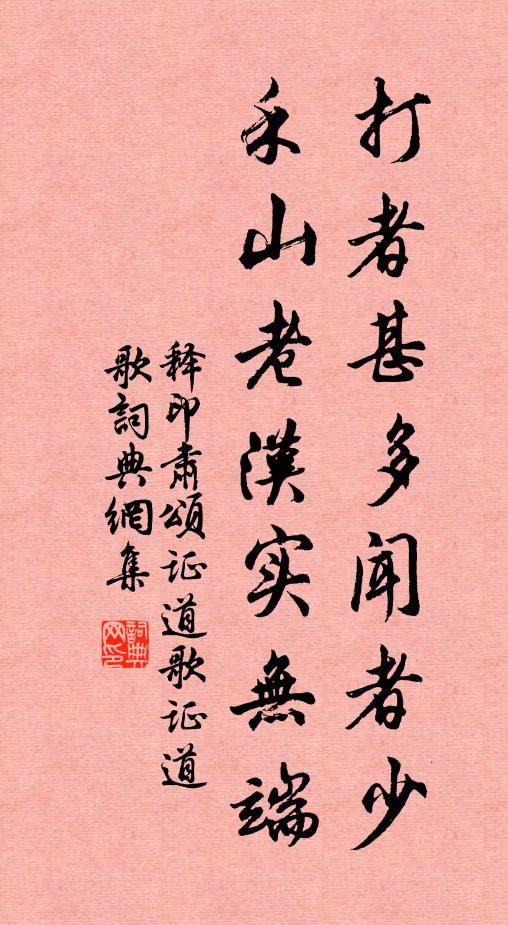 打者甚多闻者少
禾山老漢实無端
释印肃颂证道歌证道
歌詞典網集
詞典
网印